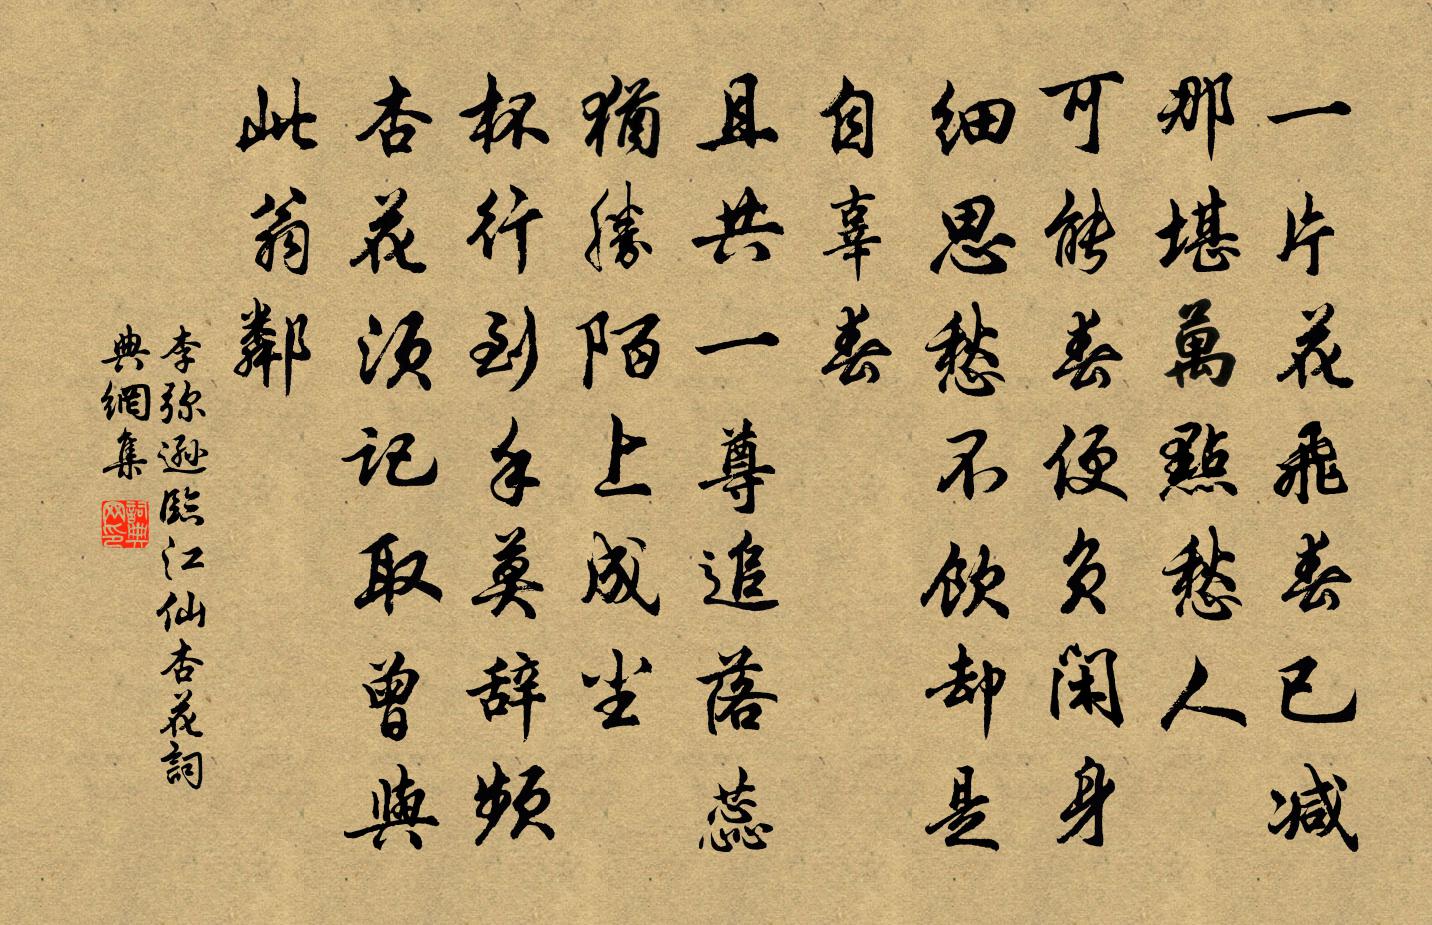 一片花飛春已减
那堪萬點愁人
可能春便負閑身
細思愁不飲却是
自辜春
且共一尊追落蕊
猶勝陌上成尘
杯行到手莫辞頻
杏花須记取曾與
此翁鄰
李弥遜臨江仙杏花詞
典網集
詞典网印